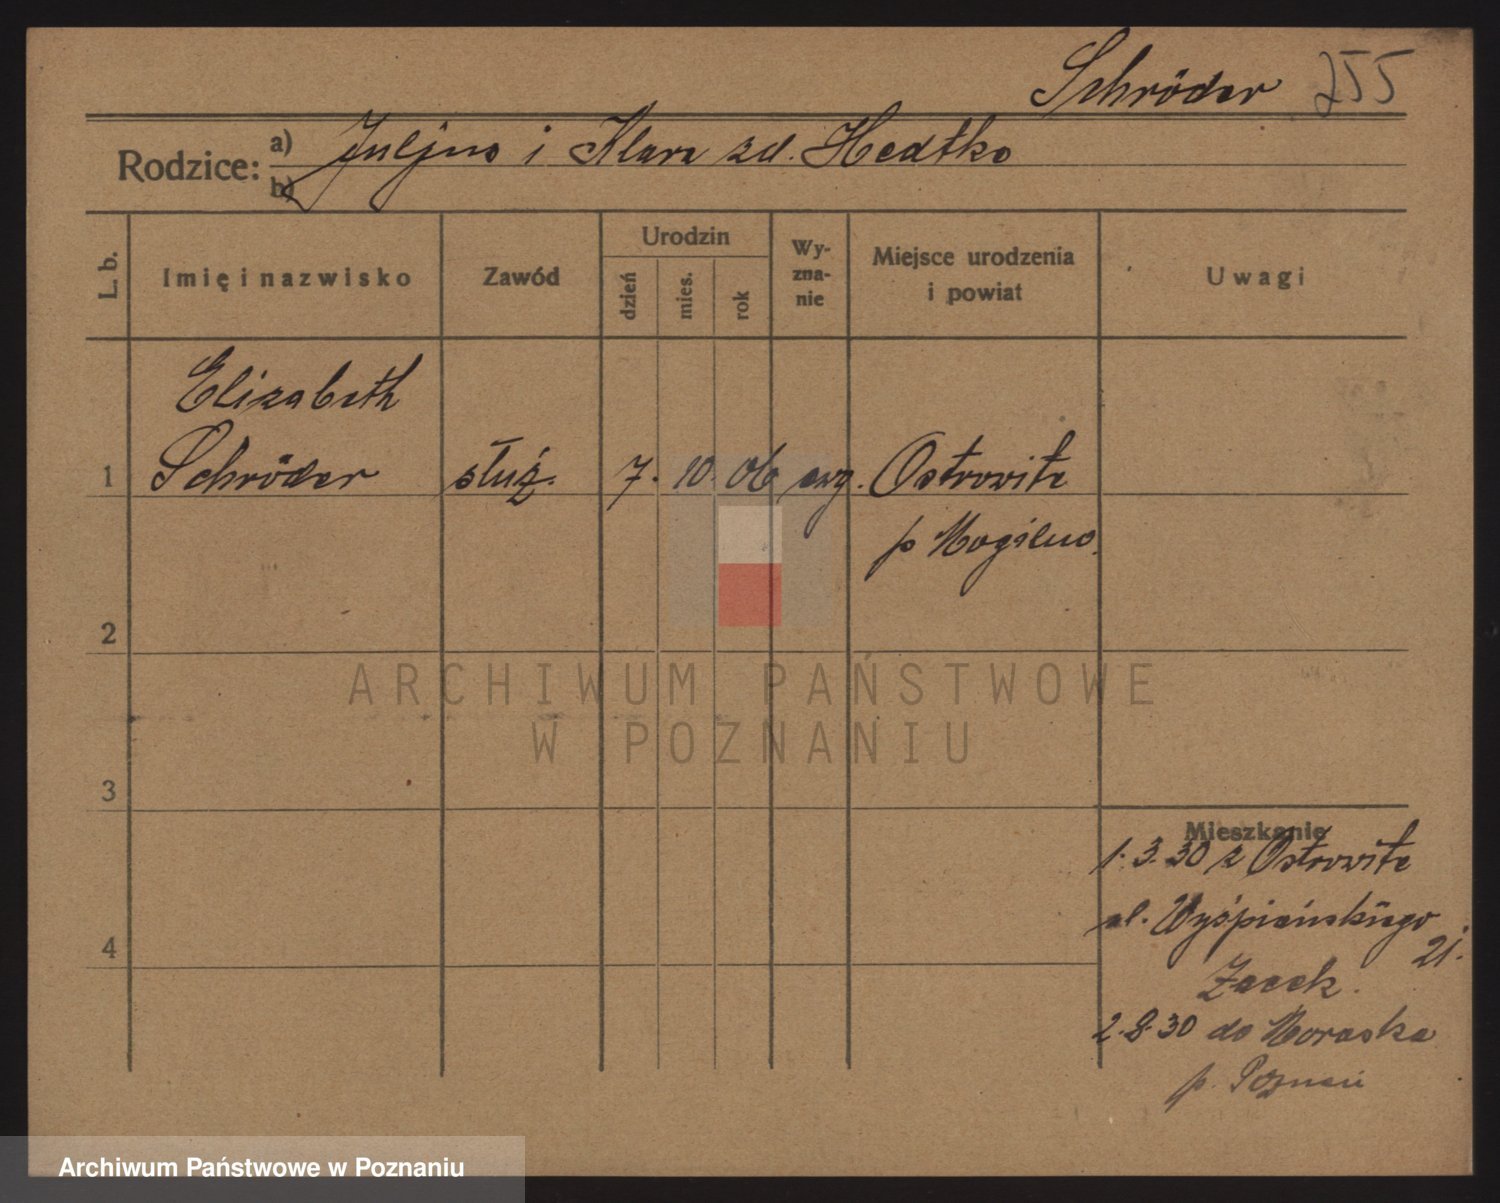 Schröder 255
Rodzice: a) Juljus i Klara zd. Hedtke
b)
L. b.
Imię i nazwisko
Zawód
Urodzin
dzień
mies.
rok
Wy-
zna-
nie
Miejsce urodzenia
i powiat
Uwagi
Elizabeth
1 Schröder służ. 7. 10. 06 ewg. Ostrowite
p Mogilno.
2
3
4
Mieszkanie
1.3.30 z Ostrowite
ul. Wyśpiańskiego
21.
2.8.30 do Moraska
p. Poznań
ARCHIWUM PAŃSTWOWE
W POZNANIU
Archiwum Państwowe w Poznaniu